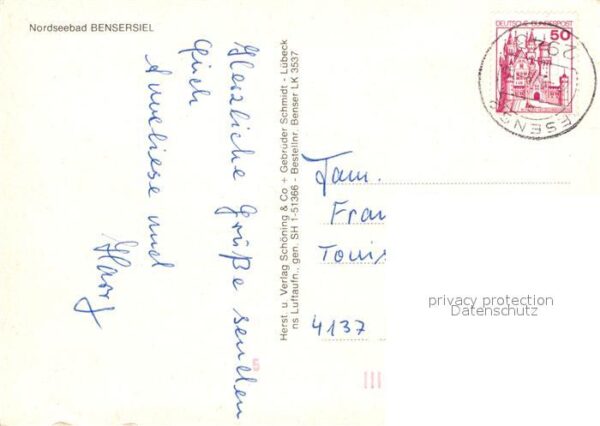 Nordseebad BENSERSIEL
Herzliche Grüße senden
Euch
Anneliese und
Harry
Herst. u. Verlag Schöning & Co + Gebrüder Schmidt - Lübeck
ns Luftaufn., gen. SH 1-51366 - Bestellnr. Benser LK 3537
DEUTSCHE BUNDESPOST
50
ESENS
Fam.
Fran
Touis
4137
privacy protection
Datenschutz